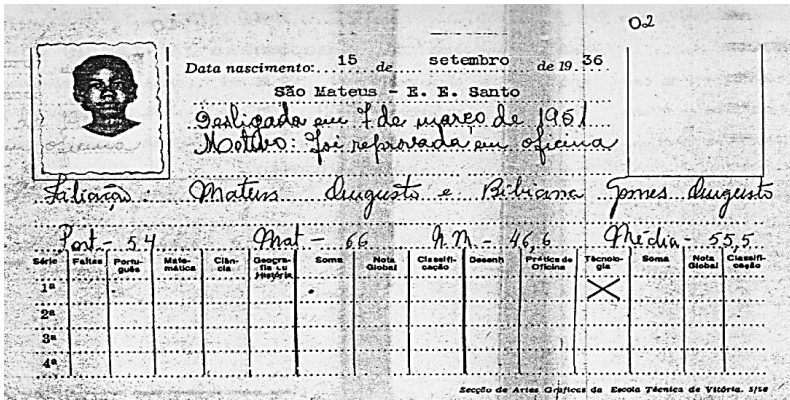 02
Data nascimento: 15 de setembro de 19 36
São Mateus - E. E. Santo
Desligada em 7 de março de 1951
Motivo: Foi reprovada em oficina
Filiação: Mateus Augusto e Bibiana Gomes Augusto
Port - 54 Mat - 66 N.M. - 46,6 Média - 55,5
Série Faltas Portu-guês Mate-mática Ciên-cia Geogra-fia ou História Soma Nota Global Classifi-cação Desenh Prática de Oficina Tècnolo-gia Soma Nota Global Classifi-cação
1ª X
2ª
3ª
4ª
Secção de Artes Gráficas da Escola Técnica de Vitória.